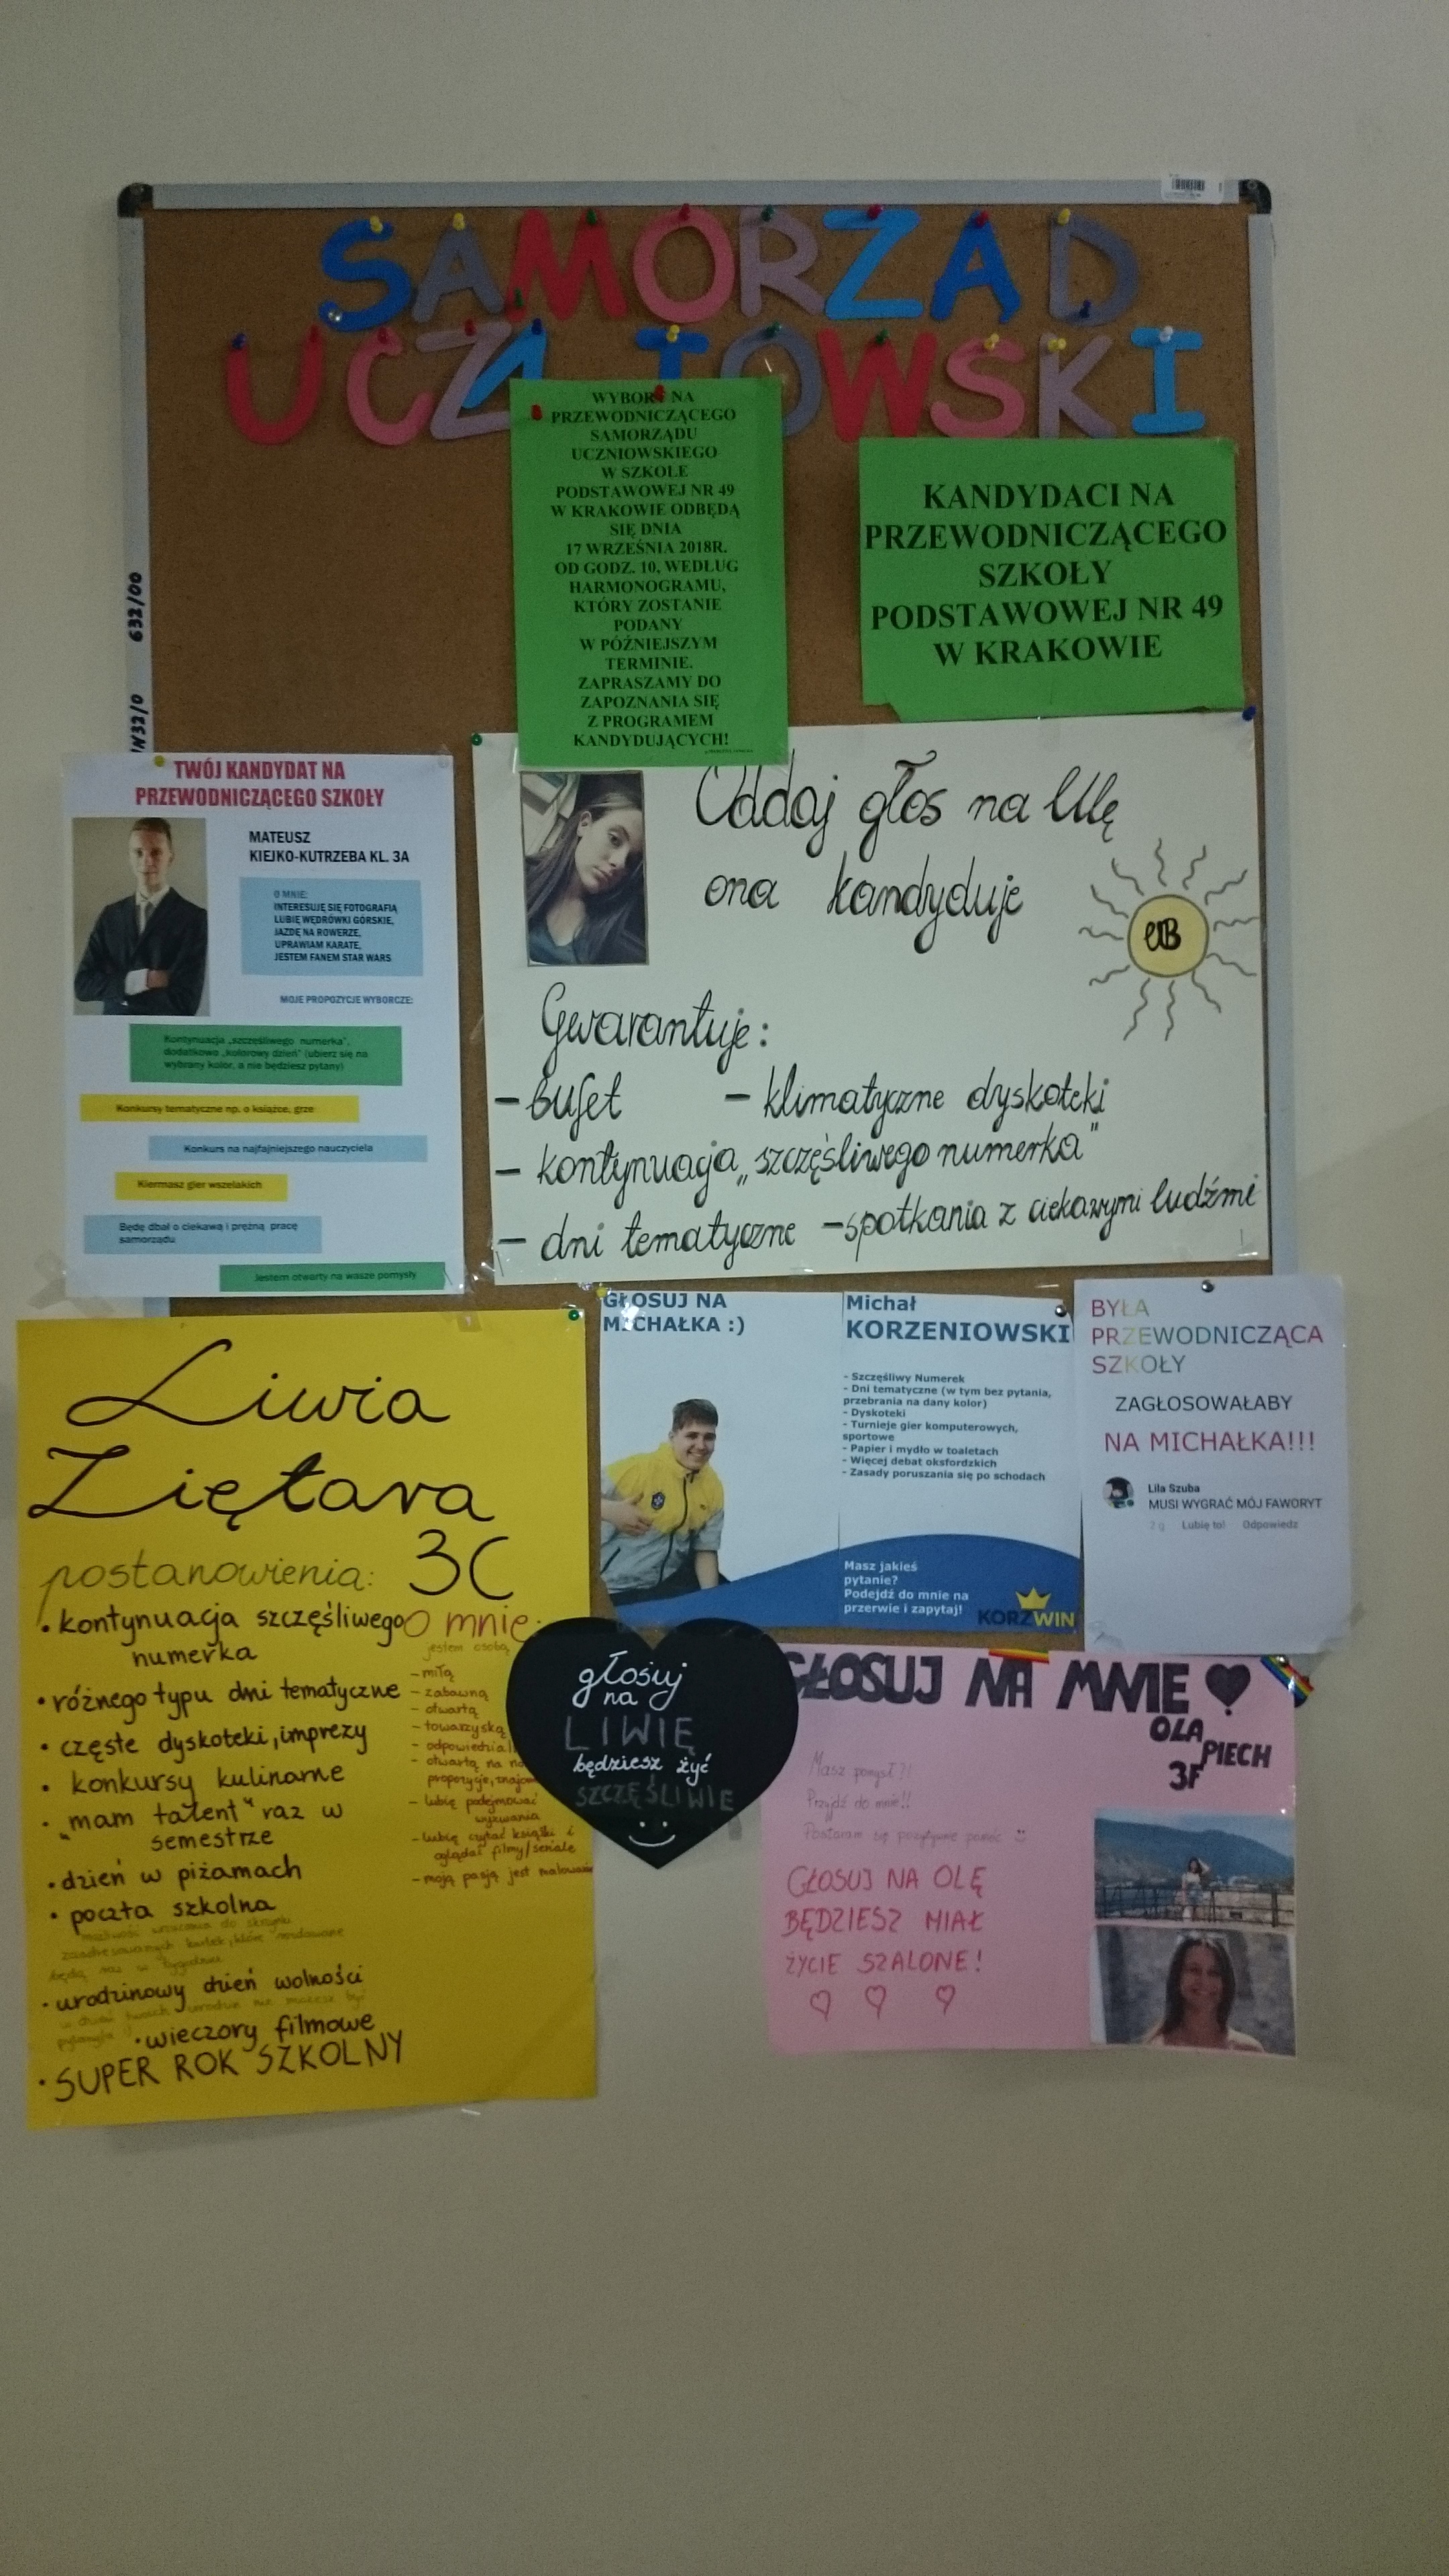 SAMORZĄD
UCZNIOWSKI
WYBORY NA
PRZEWODNICZĄCEGO
SAMORZĄDU
UCZNIOWSKIEGO
W SZKOLE
PODSTAWOWEJ NR 49
W KRAKOWIE ODBĘDĄ
SIĘ DNIA
17 WRZEŚNIA 2018R.
OD GODZ. 10, WEDŁUG
HARMONOGRAMU,
KTÓRY ZOSTANIE
PODANY
W PÓŹNIEJSZYM
TERMINIE.
ZAPRASZAMY DO
ZAPOZNANIA SIĘ
Z PROGRAMEM
KANDYDUJĄCYCH!
KANDYDACI NA
PRZEWODNICZĄCEGO
SZKOŁY
PODSTAWOWEJ NR 49
W KRAKOWIE
632/00
TWÓJ KANDYDAT NA
PRZEWODNICZĄCEGO SZKOŁY
MATEUSZ
KIEJKO-KUTRZEBA KL. 3A
O MNIE:
INTERESUJĘ SIĘ FOTOGRAFIĄ
LUBIĘ WĘDRÓWKI GÓRSKIE,
JAZDĘ NA ROWERZE,
UPRAWIAM KARATE,
JESTEM FANEM STAR WARS
MOJE PROPOZYCJE WYBORCZE:
Kontynuacja „szczęśliwego numerka",
dodatkowo „kolorowy dzień" (ubierz się na
wybrany kolor, a nie będziesz pytany)
Konkursy tematyczne np. o książce, grze
Konkurs na najfajniejszego nauczyciela
Kiermasz gier wszelakich
Będę dbał o ciekawą i prężną pracę
samorządu
Jestem otwarty na wasze pomysły
Oddaj głos na Ulę
ona kandyduje
UB
Gwarantuje:
- bufet - klimatyczne dyskoteki
- kontynuacja „szczęśliwego numerka"
- dni tematyczne - spotkania z ciekawymi ludźmi
Liwia
Ziętara
3C
postanowienia:
• kontynuacja szczęśliwego
numerka
• różnego typu dni tematyczne
• częste dyskoteki, imprezy
• konkursy kulinarne
• „mam talent" raz w
semestrze
• dzień w piżamach
• poczta szkolna
• urodzinowy dzień wolności
• wieczory filmowe
• SUPER ROK SZKOLNY
O mnie:
jestem osobą
- miłą
- zabawną
- otwartą
- towarzyską
- lubię podejmować
wyzwania
- lubię czytać książki i
oglądać filmy/seriale
- moją pasją jest
głosuj
na
LIWIĘ
będziesz żyć
SZCZĘŚLIWIE
GŁOSUJ NA
MICHAŁKA :)
Michał
KORZENIOWSKI
- Szczęśliwy Numerek
- Dni tematyczne (w tym bez pytania,
przebrania na dany kolor)
- Dyskoteki
- Turnieje gier komputerowych,
sportowe
- Papier i mydło w toaletach
- Więcej debat oksfordzkich
- Zasady poruszania się po schodach
Masz jakieś
pytanie?
Podejdź do mnie na
przerwie i zapytaj!
KORZWIN
BYŁA
PRZEWODNICZĄCA
SZKOŁY
ZAGŁOSOWAŁABY
NA MICHAŁKA!!!
Lila Szuba
MUSI WYGRAĆ MÓJ FAWORYT
2 g Lubię to! Odpowiedz
GŁOSUJ NA MNIE
OLA
PIECH
3F
Masz pomysł?!
Przyjdź do mnie!!
Postaram się pozytywnie pomóc
GŁOSUJ NA OLĘ
BĘDZIESZ MIAŁ
ŻYCIE SZALONE!